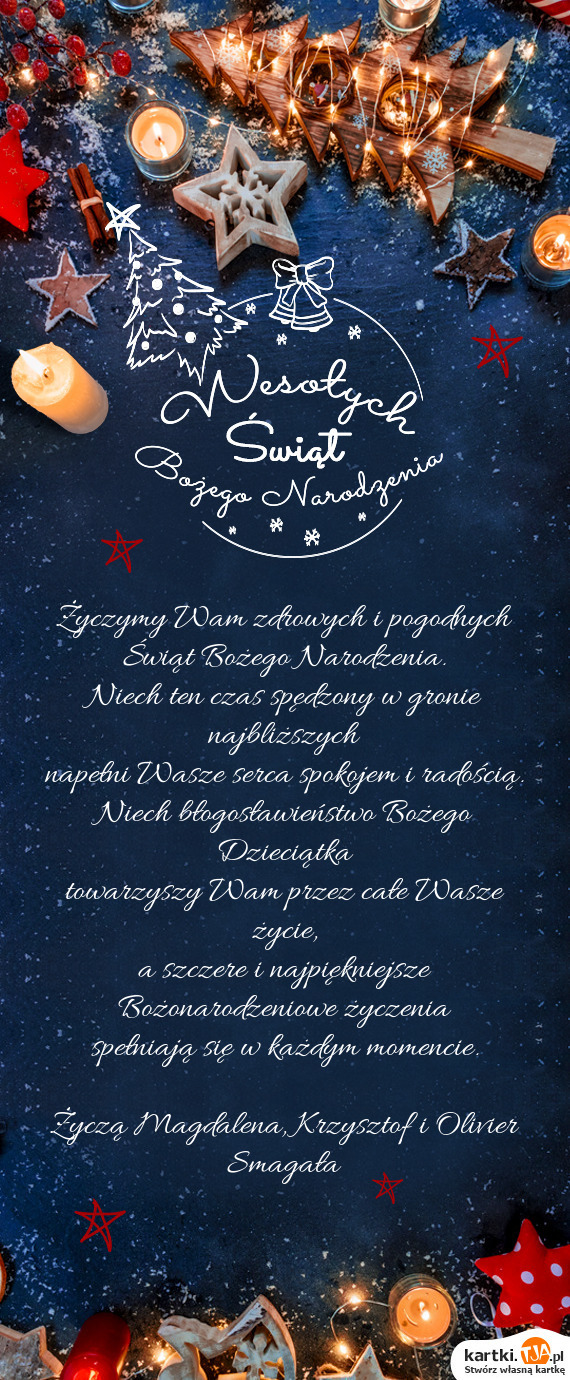 Wesołych
Świąt
Bożego Narodzenia
Życzymy Wam zdrowych i pogodnych
Świąt Bożego Narodzenia.
Niech ten czas spędzony w gronie
najbliższych
napełni Wasze serca spokojem i radością.
Niech błogosławieństwo Bożego
Dzieciątka
towarzyszy Wam przez całe Wasze
życie,
a szczere i najpiękniejsze
Bożonarodzeniowe życzenia
spełniają się w każdym momencie.
Życzą Magdalena, Krzysztof i Olivier
Smagała
kartki.TJA.pl
Stwórz własną kartkę